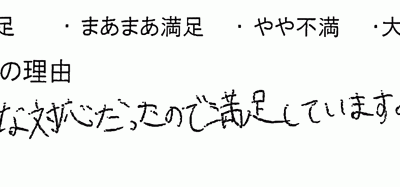 足 ・まあまあ満足 ・やや不満 ・大
の理由
な対応だったので満足しています。